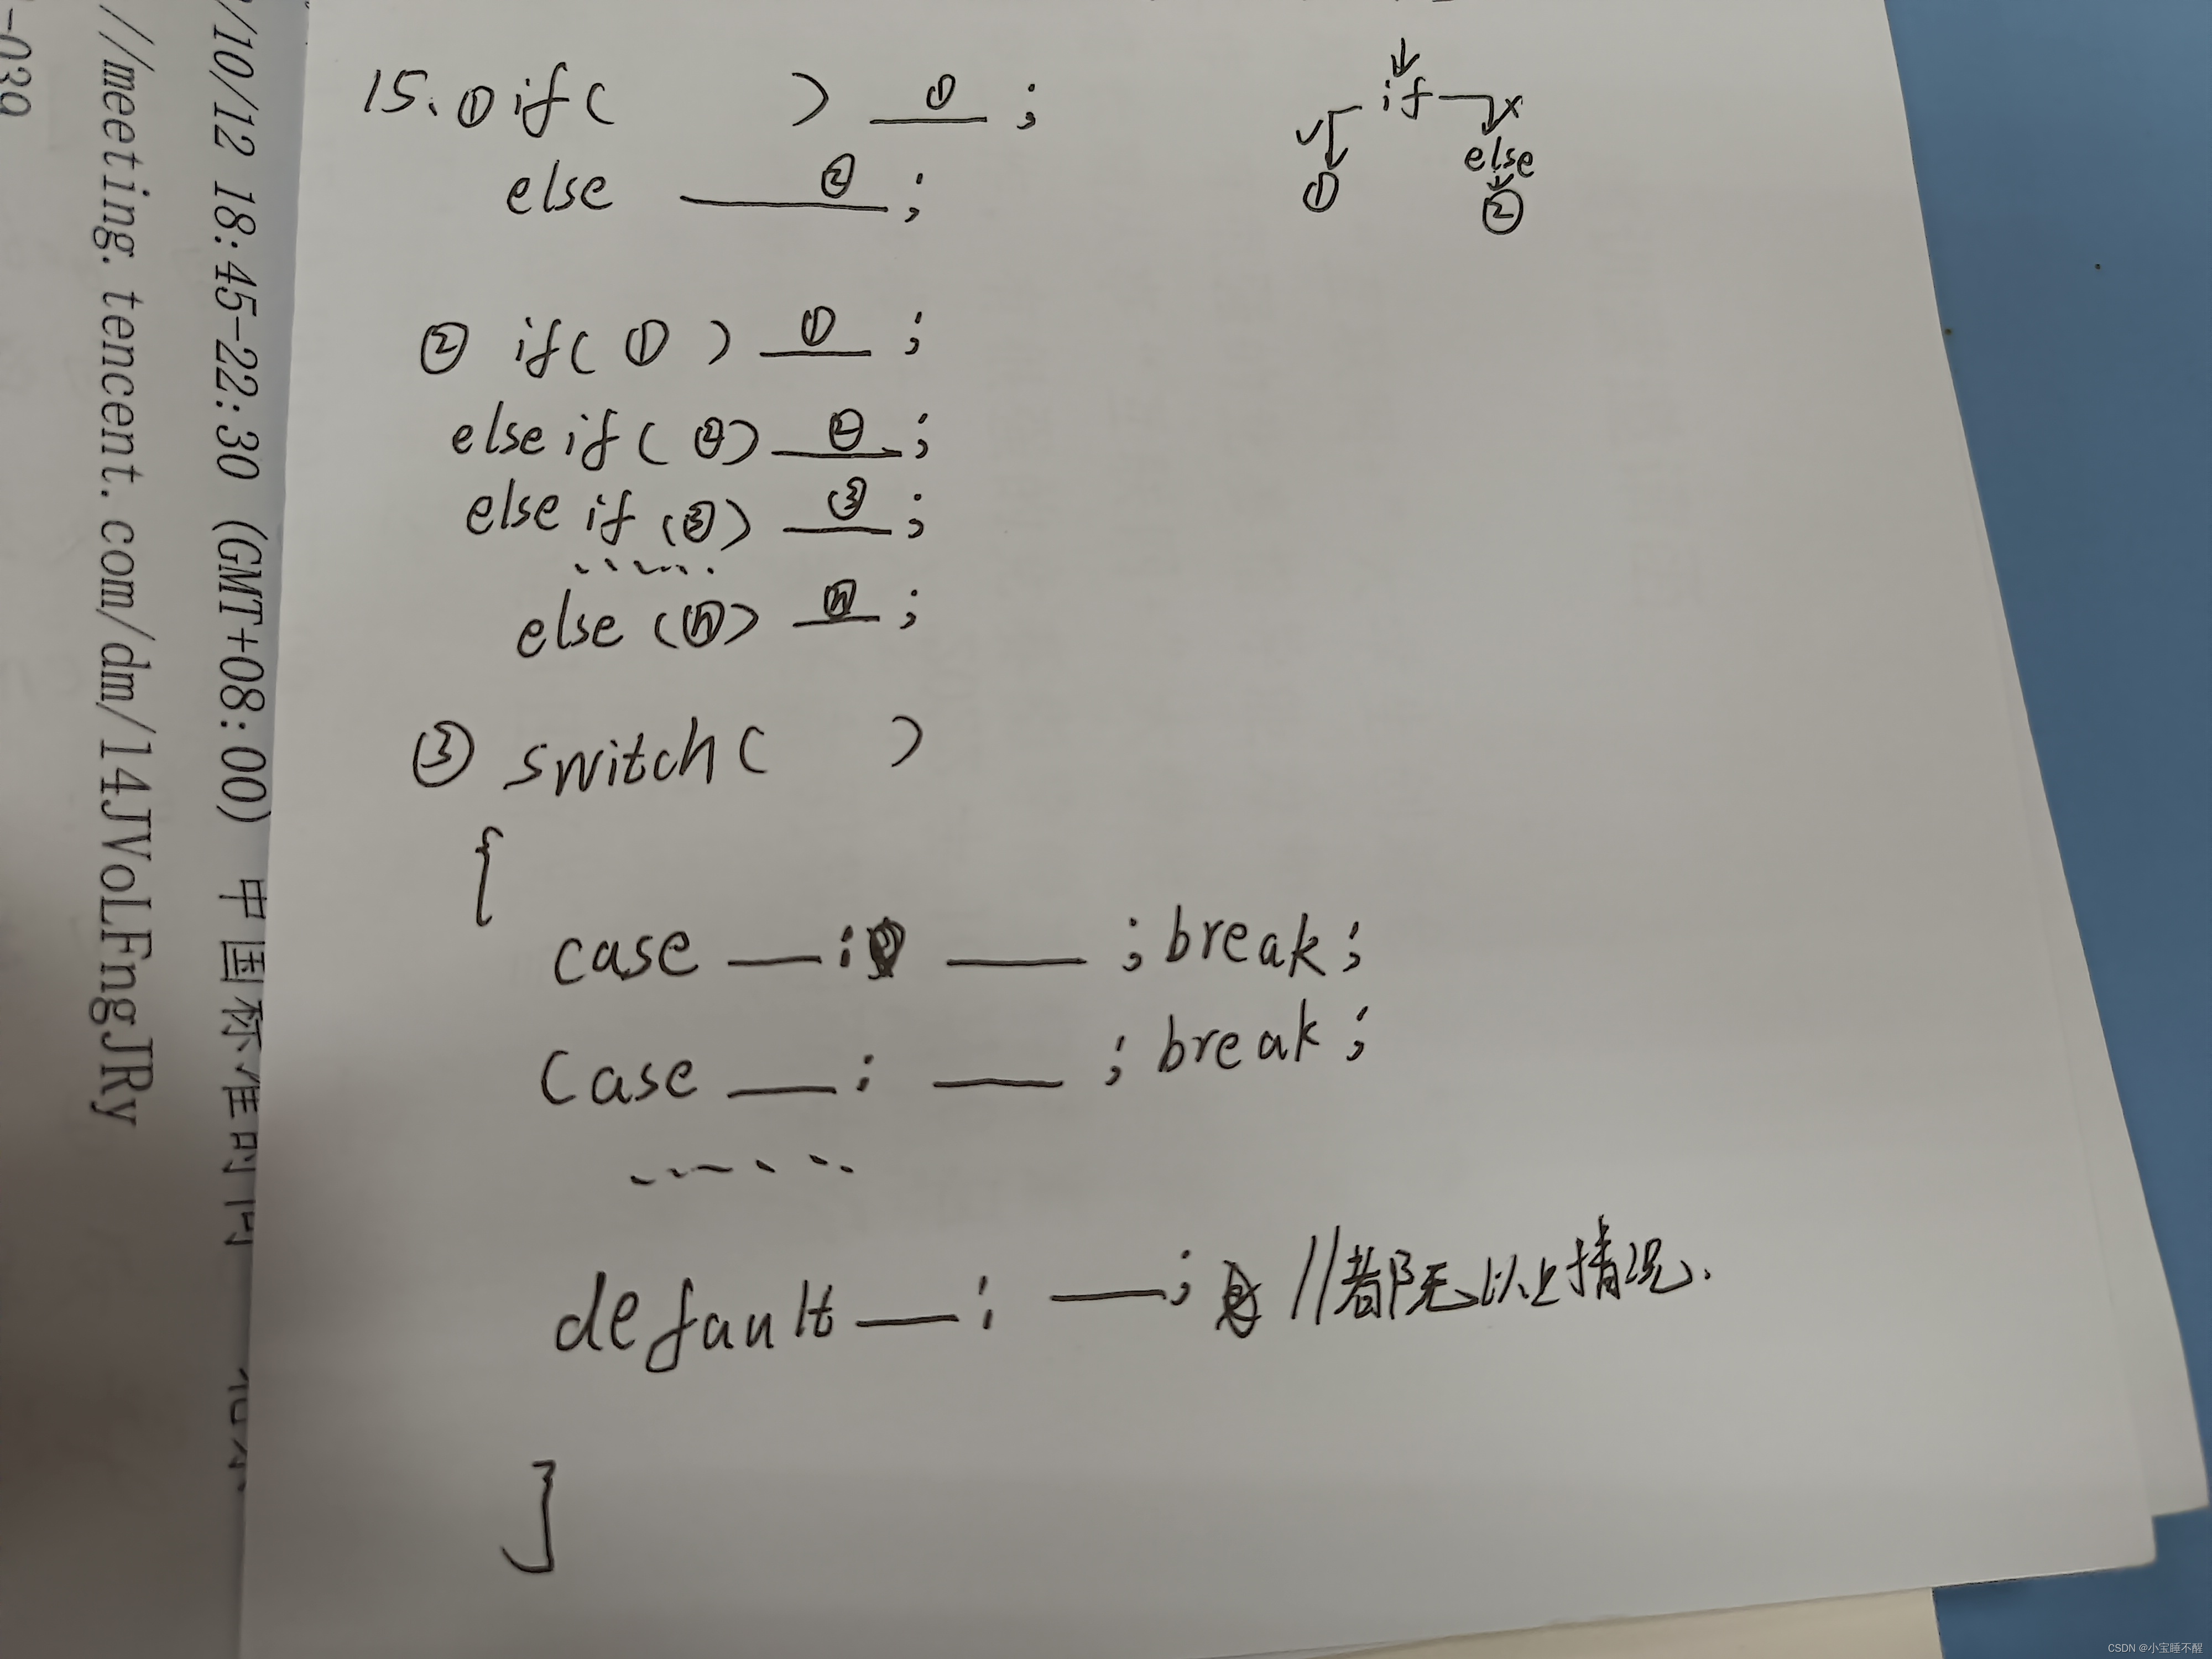 15. ① if(        ) ① ;
else ② ;
if
✓ ×
else
① ②
② if( ① ) ① ;
else if( ② ) ② ;
else if (③) ③ ;
......
else (n) n ;
③ switch(        )
{
case __ : ____ ; break ;
case __ : ____ ; break ;
......
default __ : __ ; //都无以上情况.
}
/10/12 18:45-22:30 (GMT+08:00) 中国标准时间
//meeting.tencent.com/dm/14JVoLFngJRy
CSDN @小宝睡不醒